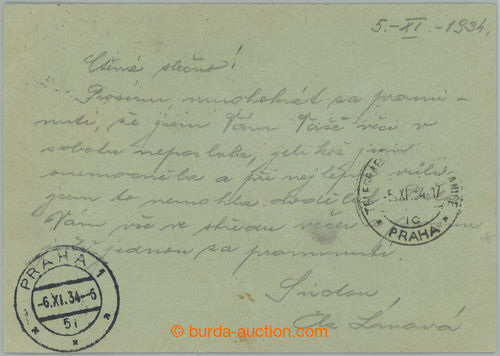 5.-XI.-1934.
Ctěná slečno!
Prosím mnohokrát za promi-
nutí, že jsem Vám Vaše věci v
sobotu neposlala, jelikož jsem
onemocněla a při nejlepší vůli
jsem to nemohla
Vám vše ve středu večer
jednou za prominutí.
5.XI.34.17
1c
* PRAHA *
PRAHA 1
-6.XI.34.-6
51
Lánová
burda-auction.com